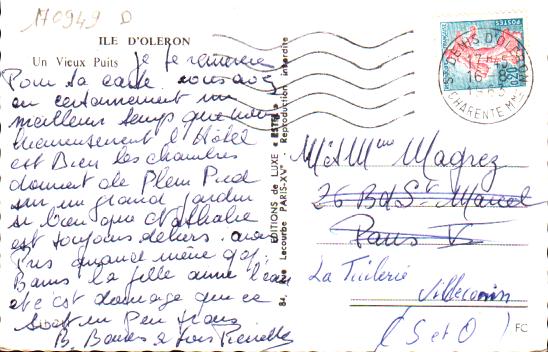 170949 D
ILE D'OLERON
Un Vieux Puits
je te remercie
Pour ta carte vous avez
eu certainement un
meilleur temps que nous
heureusement l'Hôtel
est Bien les chambres
donnent de Plein Pied
sur un grand jardin
si bien que Nathalie
est toujours dehors. avons
Pris quand même qq.
Bains la fille aime l'eau
et c'est dommage que ce
soit un Peu frais
B. Baisers à tous
84, rue Lecourbe PARIS-XVe
EDITIONS de LUXE « ESTEL »
Reproduction interdite
POSTES
0,20
ST DENIS D'OLERON
17 H
16
CHARENTE Mme
M et Mme Magrez
26 Bd St Marcel
Paris V
La Tuilerie
Villeconin
(S et O)
FC